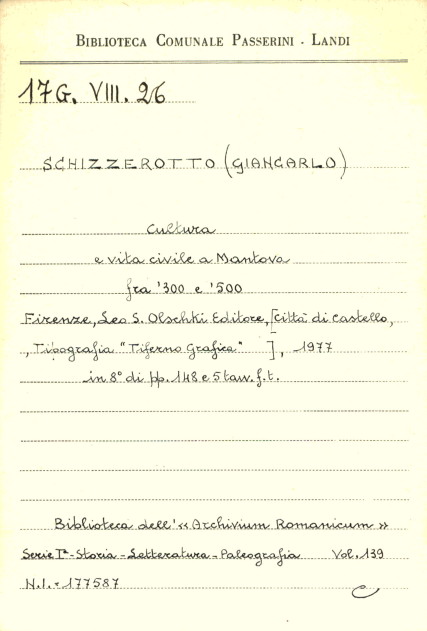 BIBLIOTECA COMUNALE PASSERINI - LANDI
17G. VIII. 26
SCHIZZEROTTO (GIANCARLO)
Cultura
e vita civile a Mantova
fra '300 e '500
Firenze, Leo S. Olschki Editore, [Città di Castello,
, Tipografia "Tiferno Grafica" ], 1977
in 8° di pp. 148 e 5 tavv. f. t.
Biblioteca dell' «Archivium Romanicum»
Serie Iª - Storia - Letteratura - Paleografia Vol. 139
N.I. - 177587